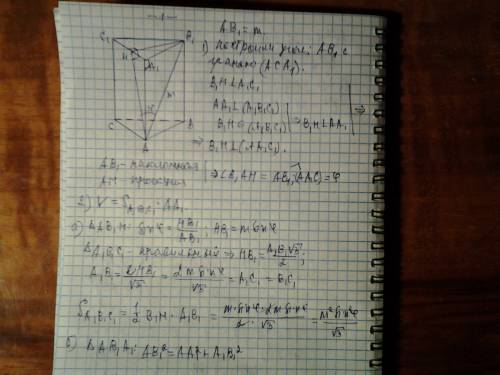 -1-
AB₁ = m.
1) построим угол: AB₁ с
гранью (ACA₁).
B₁H⊥A₁C₁
AA₁⊥(A₁B₁C₁)
B₁H∈(A₁B₁C₁) | ⇒ B₁H⊥AA₁ | ⇒
⇒ B₁H⊥(AA₁C₁).
C₁ B₁ H A₁ m C B A
AB₁ - наклонная
AH - проекция | ⇒ ∠B₁AH = AB₁,(AA₁C) = φ
2) V = S_A₁B₁C₁ · AA₁
а) ΔAB₁H: sin φ = HB₁/AB₁; HB₁ = m sin φ
ΔA₁B₁C₁ - правильный ⇒ HB₁ = A₁B₁√3/2;
A₁B₁ = 2HB₁/√3 = 2m sin φ/√3 = A₁C₁ = B₁C₁
S_A₁B₁C₁ = 1/2 B₁H · A₁B₁ = m·sin φ·2m sin φ/2·√3 = m² sin² φ/√3
б) ΔAB₁A₁: AB₁² = AA₁² + A₁B₁²